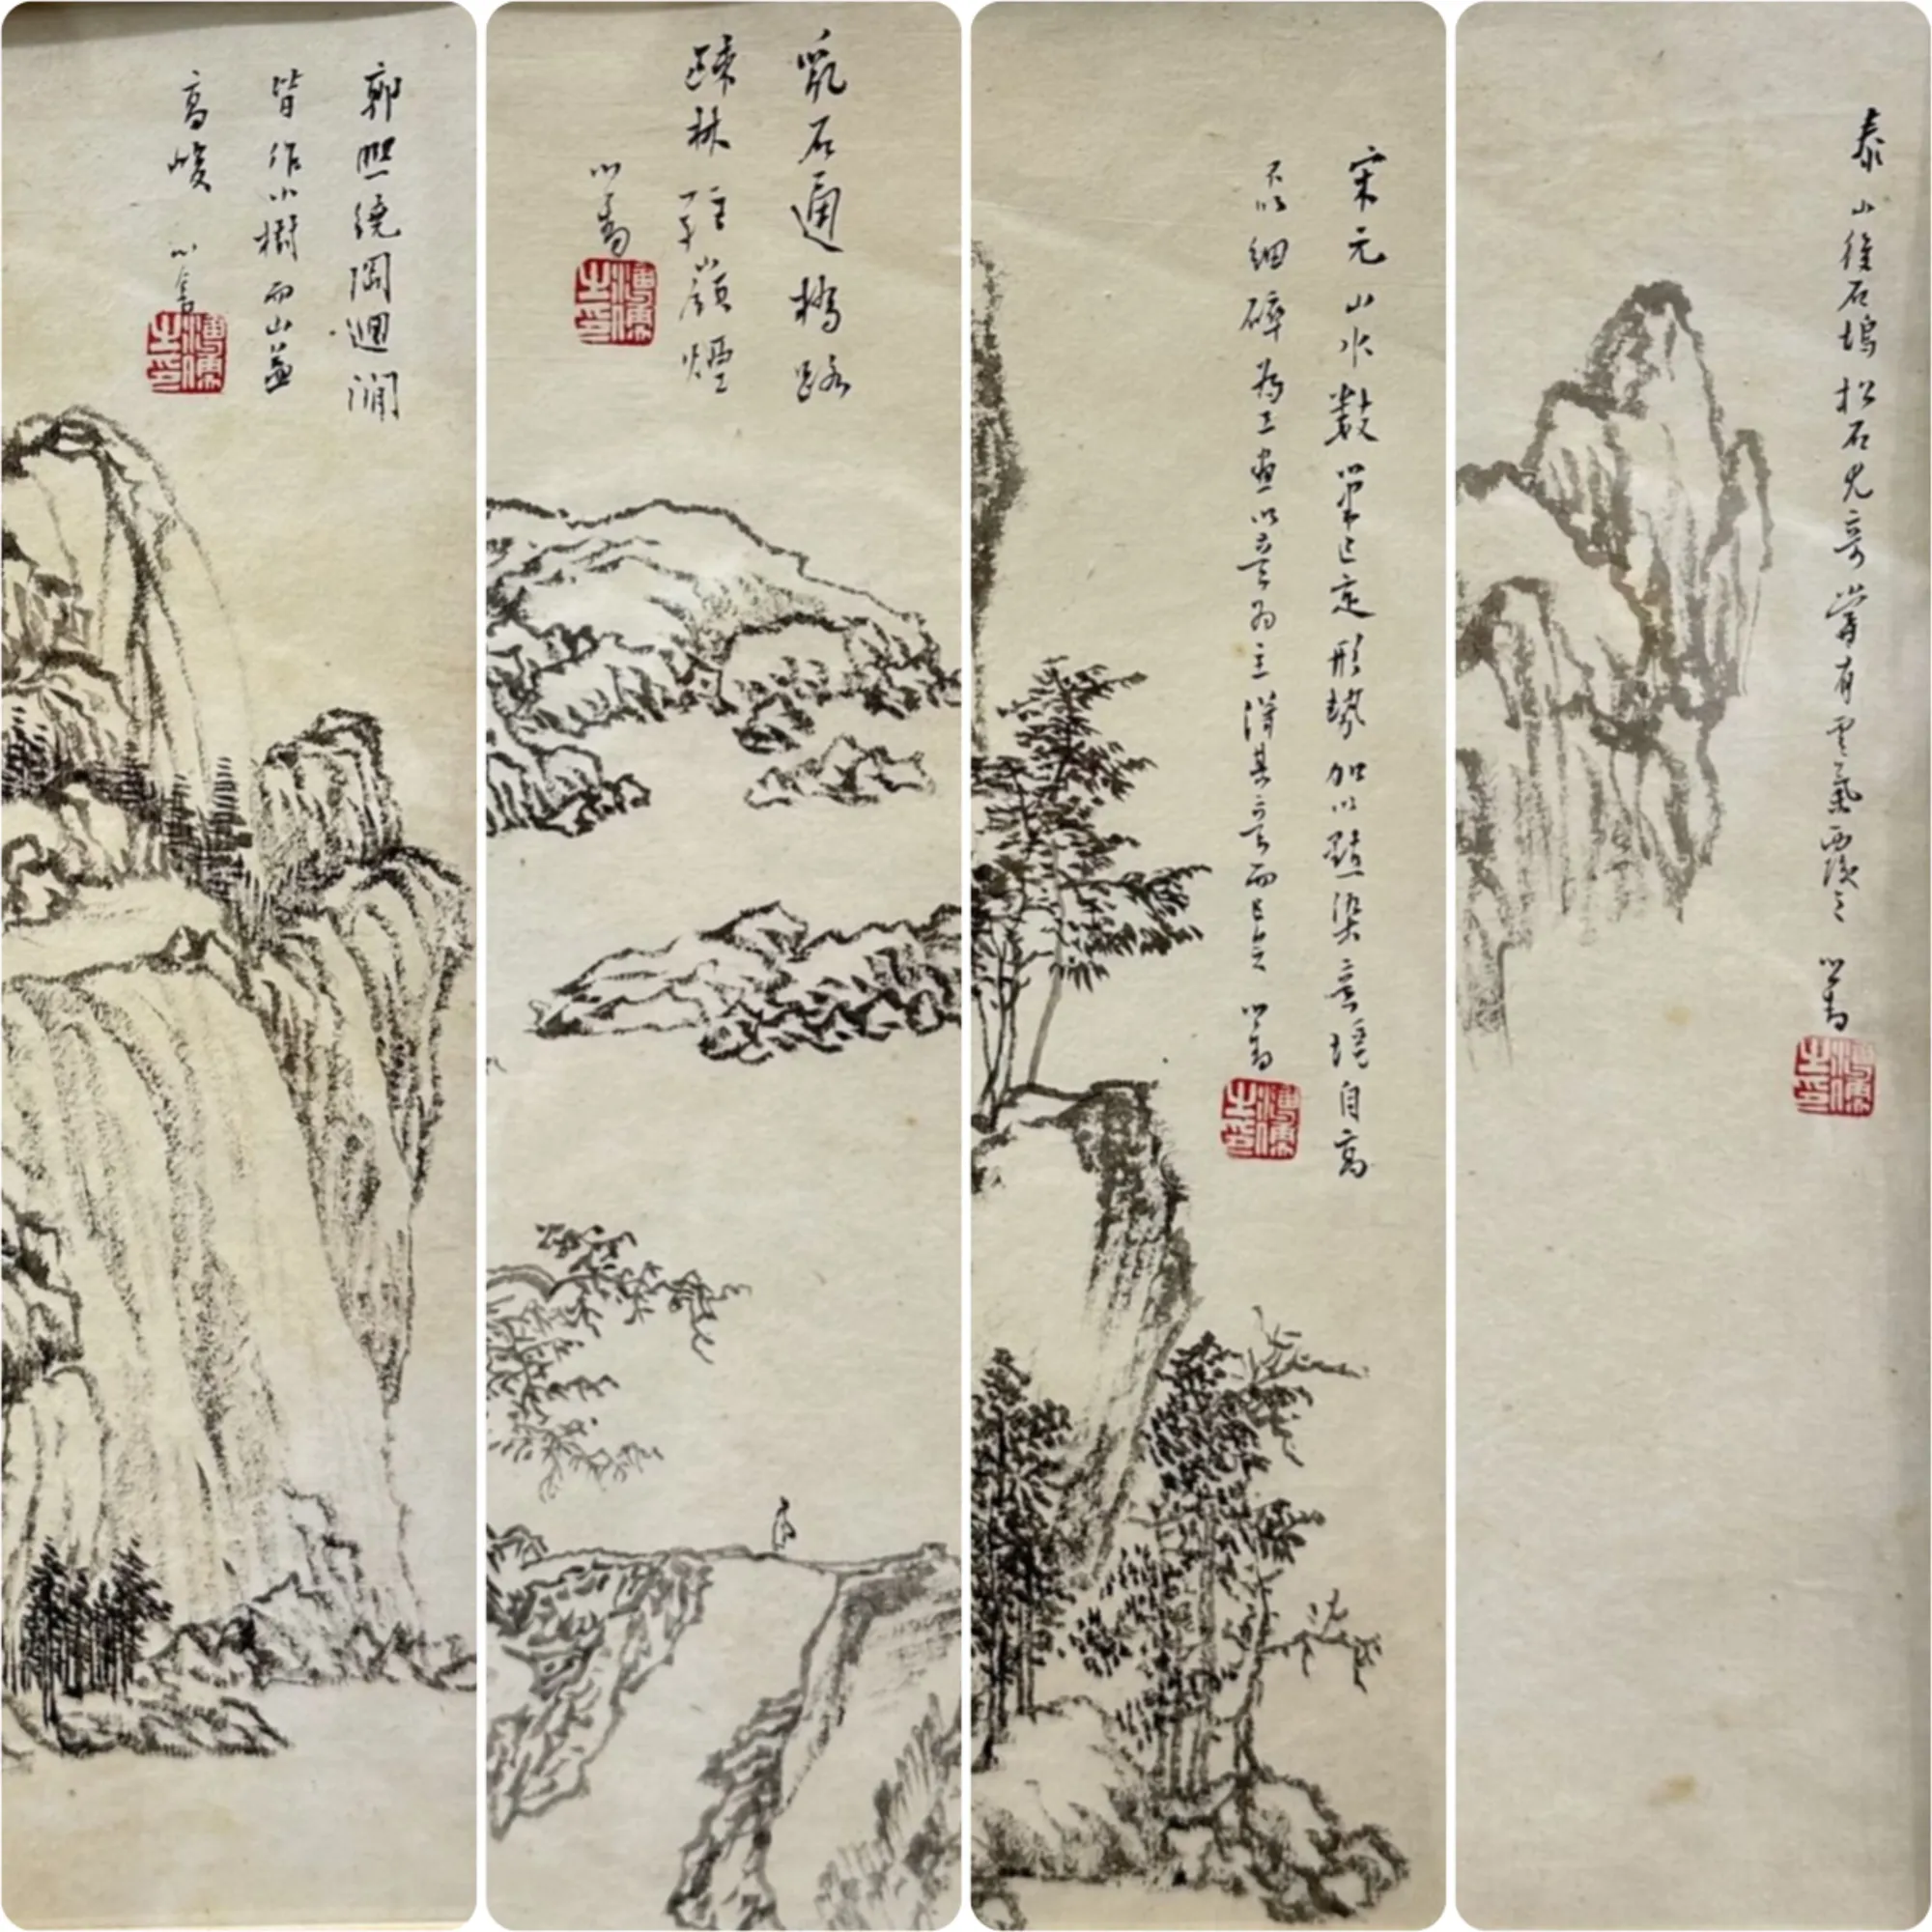 郭熙繞岡迴澗
皆作小樹而山益
高峻 心畬
溥儒之印
亂石通橋路
疎林嶺煙
心畬
溥儒之印
宋元山水數筆已定形勢加以點染意境自高
不以細碎為工畫以意為主得其意而已矣 心畬
溥儒之印
泰山後石塢松石尤奇嘗有雲氣覆之 心畬
溥儒之印